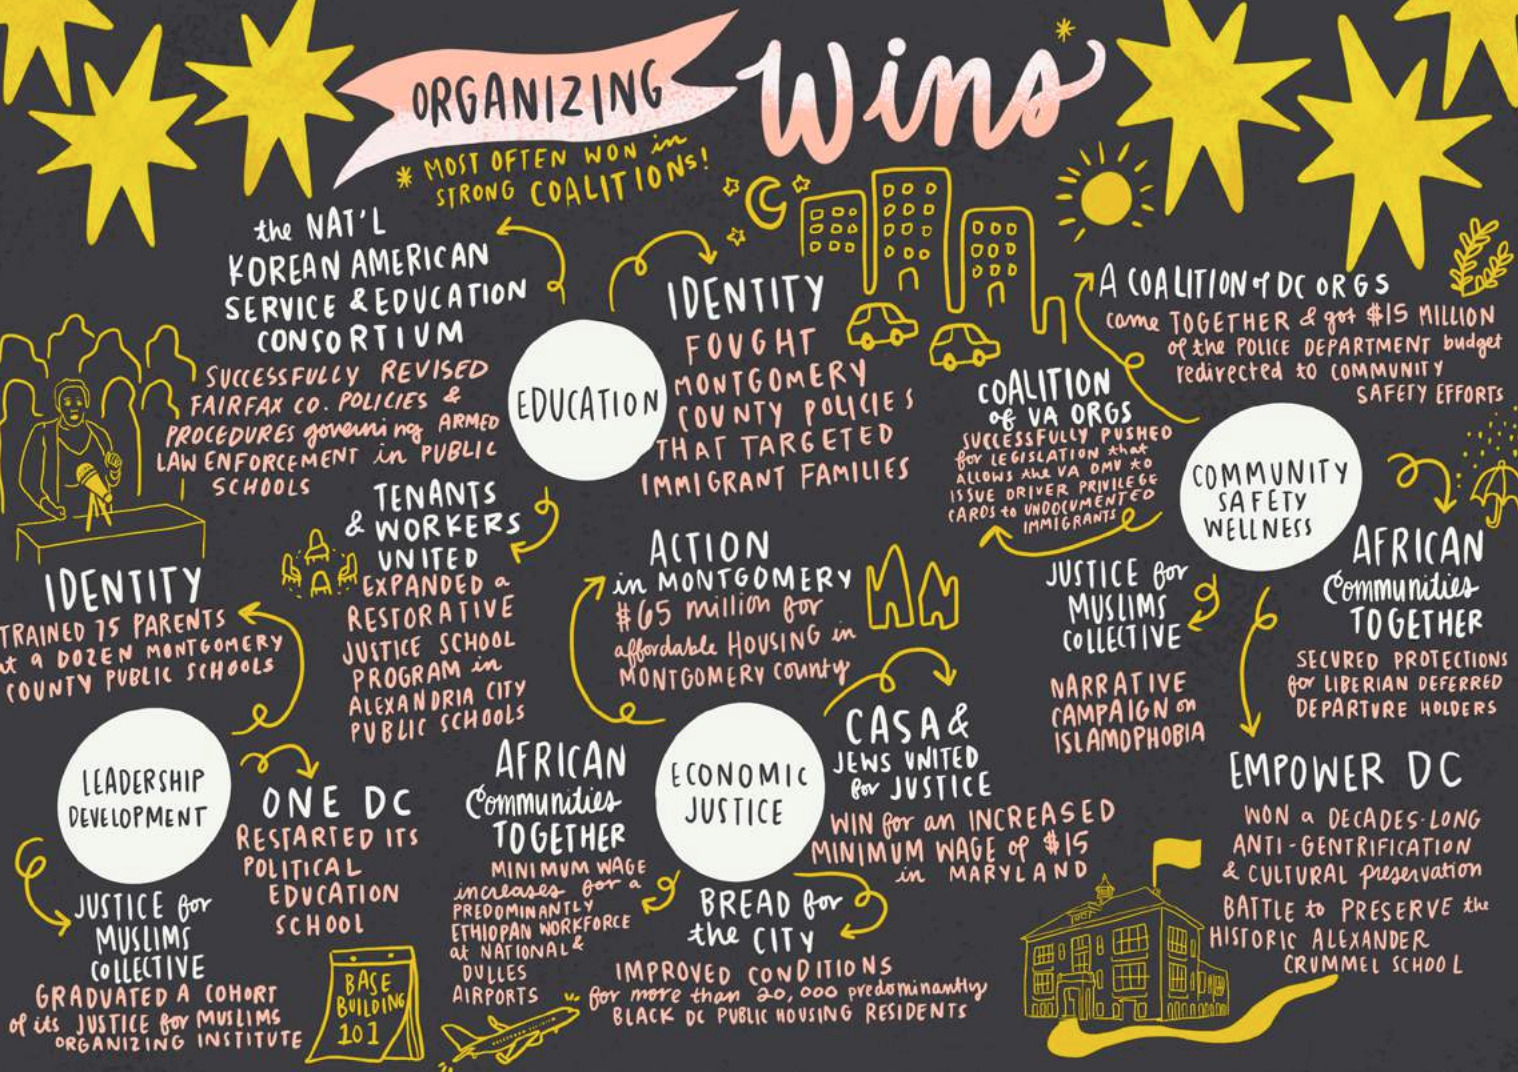 ORGANIZING Wins*
* MOST OFTEN WON in
STRONG COALITIONS!
the NAT'L
KOREAN AMERICAN
SERVICE & EDUCATION
CONSORTIUM
SUCCESSFULLY REVISED
FAIRFAX CO. POLICIES &
PROCEDURES governing ARMED
LAW ENFORCEMENT in PUBLIC
SCHOOLS
EDUCATION
IDENTITY
FOUGHT
MONTGOMERY
COUNTY POLICIES
THAT TARGETED
IMMIGRANT FAMILIES
TENANTS
& WORKERS
UNITED
EXPANDED a
RESTORATIVE
JUSTICE SCHOOL
PROGRAM in
ALEXANDRIA CITY
PUBLIC SCHOOLS
A COALITION of DC ORGS
came TOGETHER & got $15 MILLION
of the POLICE DEPARTMENT budget
redirected to COMMUNITY
SAFETY EFFORTS
COALITION
of VA ORGS
SUCCESSFULLY PUSHED
for LEGISLATION that
ALLOWS the VA DMV to
ISSUE DRIVER PRIVILEGE
CARDS to UNDOCUMENTED
IMMIGRANTS
COMMUNITY
SAFETY
WELLNESS
JUSTICE for
MUSLIMS
COLLECTIVE
NARRATIVE
CAMPAIGN on
ISLAMOPHOBIA
AFRICAN
Communities
TOGETHER
SECURED PROTECTIONS
for LIBERIAN DEFERRED
DEPARTURE HOLDERS
EMPOWER DC
WON a DECADES-LONG
ANTI-GENTRIFICATION
& CULTURAL preservation
BATTLE to PRESERVE the
HISTORIC ALEXANDER
CRUMMEL SCHOOL
IDENTITY
TRAINED 75 PARENTS
at a DOZEN MONTGOMERY
COUNTY PUBLIC SCHOOLS
LEADERSHIP
DEVELOPMENT
ONE DC
RESTARTED ITS
POLITICAL
EDUCATION
SCHOOL
JUSTICE for
MUSLIMS
COLLECTIVE
GRADUATED A COHORT
of its JUSTICE for MUSLIMS
ORGANIZING INSTITUTE
BASE
BUILDING
101
ACTION
in MONTGOMERY
$65 million for
affordable HOUSING in
MONTGOMERY county
ECONOMIC
JUSTICE
CASA &
JEWS UNITED
for JUSTICE
WIN for an INCREASED
MINIMUM WAGE of $15
in MARYLAND
AFRICAN
Communities
TOGETHER
MINIMUM WAGE
increases for a
PREDOMINANTLY
ETHIOPAN WORKFORCE
at NATIONAL &
DULLES
AIRPORTS
BREAD for
the CITY
IMPROVED CONDITIONS
for more than 20,000 predominantly
BLACK DC PUBLIC HOUSING RESIDENTS